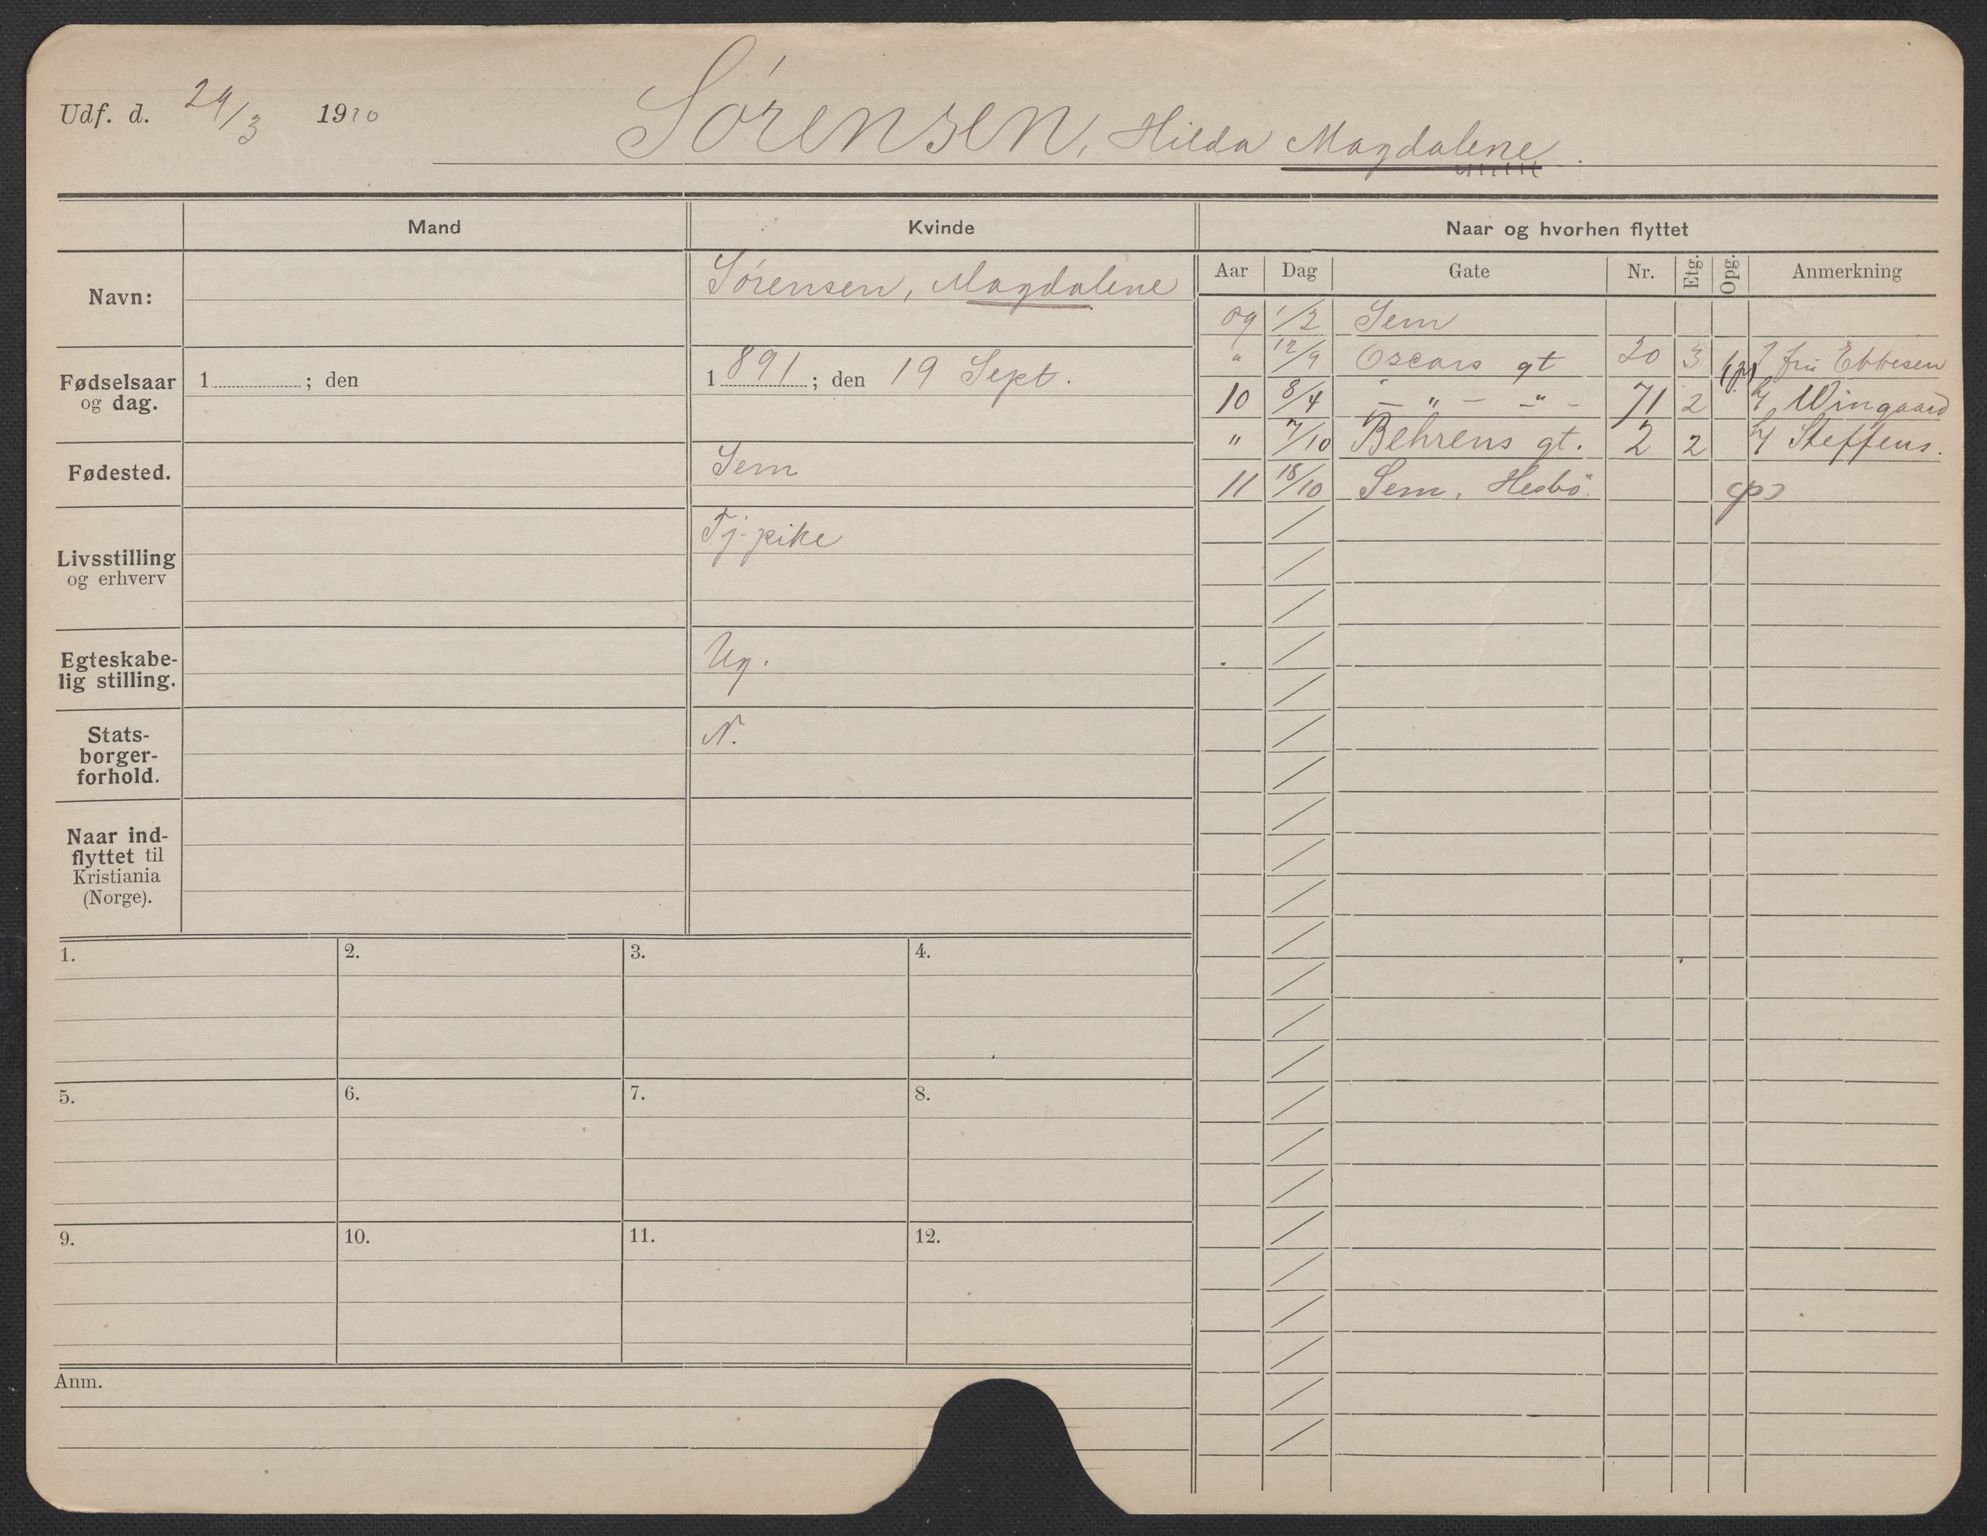 Udf. d. 29/3 1910
Sørensen, Hilda Magdalene
Mand
Kvinde
Naar og hvorhen flyttet
Aar Dag Gate Nr. Etg. Opg. Anmerkning
Navn:
Sørensen, Magdalene
Fødselsaar
og dag.
1 ; den
1891 ; den 19 Sept.
Fødested.
Sem
Livsstilling
og erhverv
Tj. pike
Egteskabe-
lig stilling.
Ug.
Stats-
borger-
forhold.
N.
Naar ind-
flyttet til
Kristiania
(Norge).
09 1/2 Sem
" 12/9 Oscars gt 20 3 fru Ebbesen
10 8/4 — " — — " — 71 2 Wingaard
" 7/10 Behrens gt. 2 2 Steffens.
11 18/10 Sem, Hesbö.
1.
2.
3.
4.
5.
6.
7.
8.
9.
10.
11.
12.
Anm.